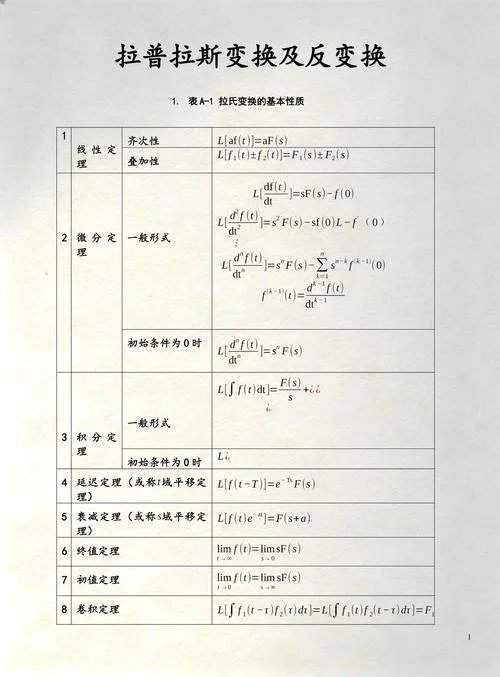 拉普拉斯变换及反变换
1. 表A-1 拉氏变换的基本性质
1 线性定理 齐次性 L[af(t)]=aF(s)
叠加性 L[f₁(t)±f₂(t)]=F₁(s)±F₂(s)
2 微分定理 一般形式 L[df(t)/dt]=sF(s)−f(0)
L[d²f(t)/dt²]=s²F(s)−sf(0)L−f′(0)
⋮
L[dⁿf(t)/dtⁿ]=sⁿF(s)−∑ₖ₌₁ⁿ sⁿ⁻ᵏf⁽ᵏ⁻¹⁾(0)
f⁽ᵏ⁻¹⁾(t)=dᵏ⁻¹f(t)/dtᵏ⁻¹
初始条件为0时 L[dⁿf(t)/dtⁿ]=sⁿF(s)
3 积分定理 一般形式 L[∫f(t)dt]=F(s)/s+¿¿
¿
初始条件为0时 L¿
4 延迟定理(或称t域平移定理) L[f(t−T)]=e⁻ᵀˢF(s)
5 衰减定理(或称s域平移定理) L[f(t)e⁻ᵃᵗ]=F(s+a)
6 终值定理 lim t→∞ f(t)=lim s→0 sF(s)
7 初值定理 lim t→0 f(t)=lim s→∞ sF(s)
8 卷积定理 L[∫f₁(t−τ)f₂(τ)dτ]=L[∫f₁(t)f₂(t−τ)dτ]=F₁
1